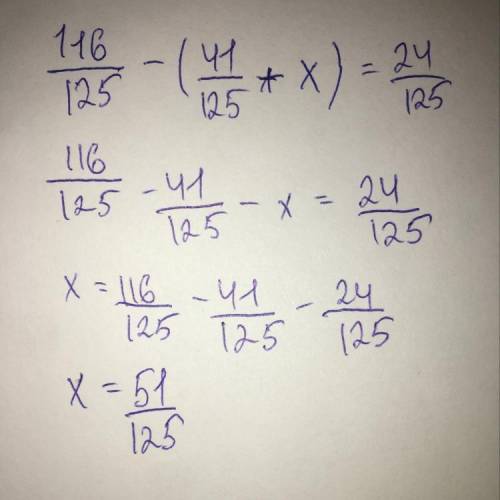 116/125 - (41/125 + x) = 24/125
116/125 - 41/125 - x = 24/125
x = 116/125 - 41/125 - 24/125
x = 51/125